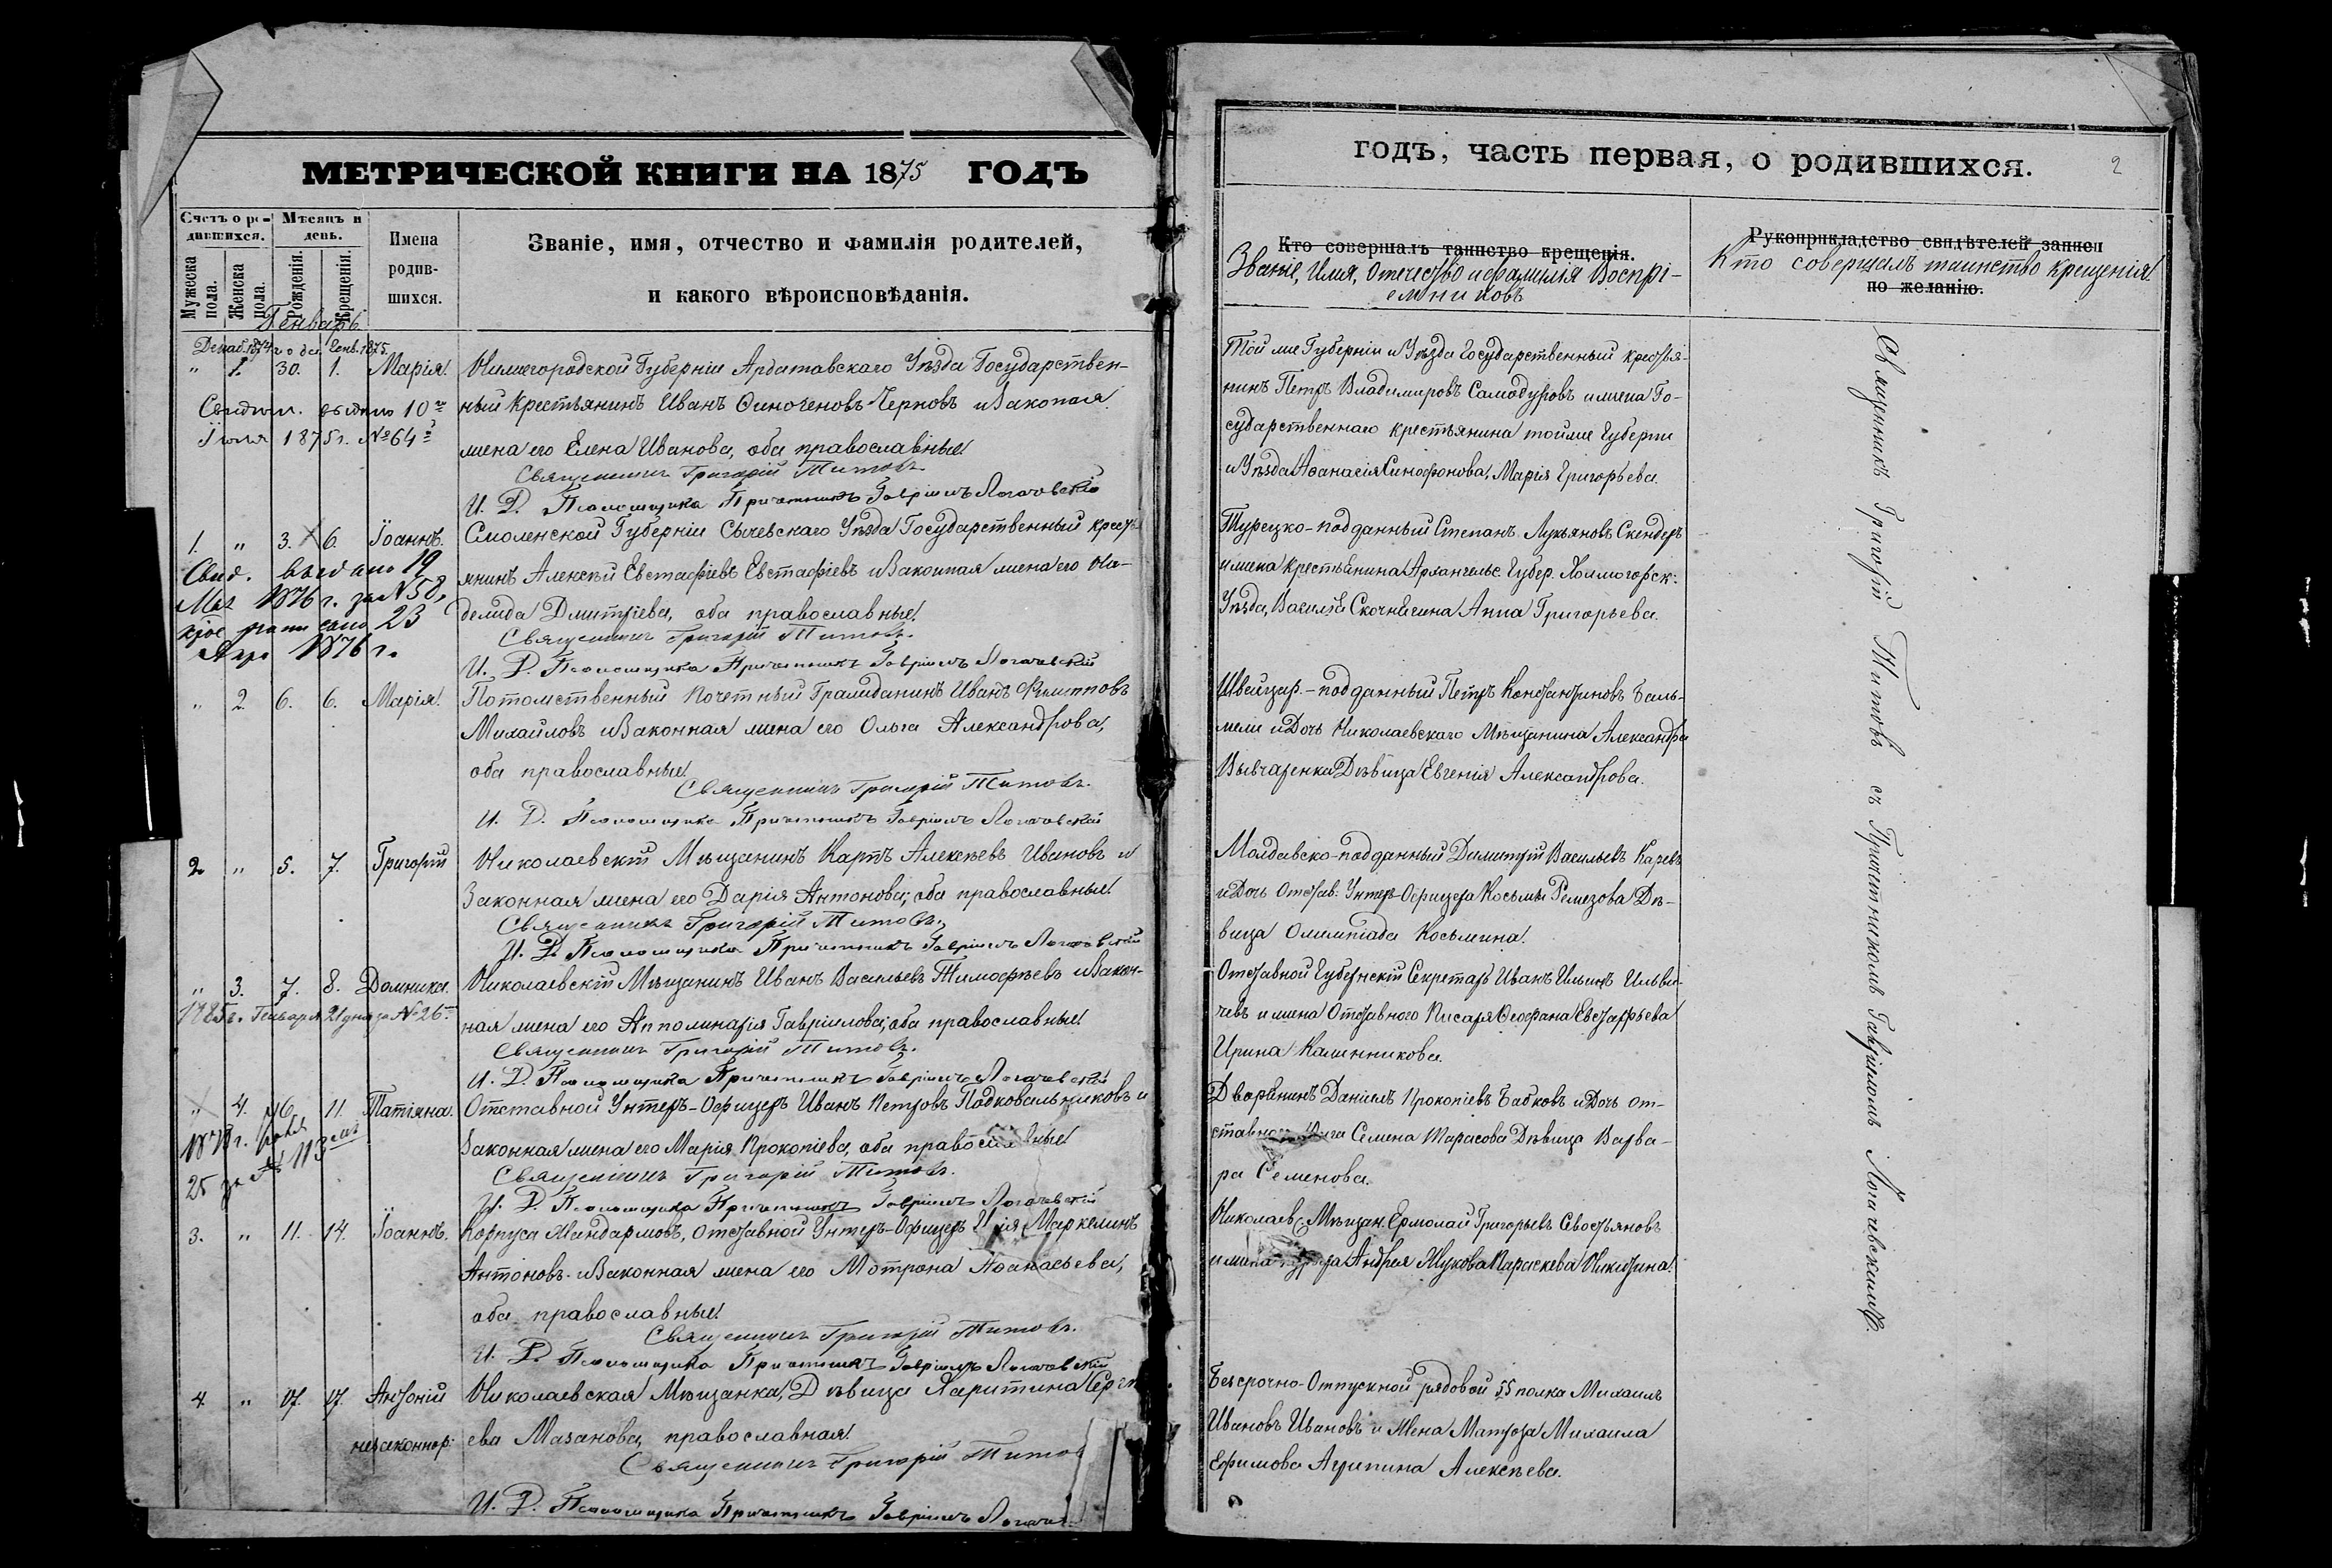 МЕТРИЧЕСКОЙ КНИГИ НА 1875 ГОДЪ
Счетъ о ро-
дившихся.
Мѣсяцъ и
день.
Мужеска
пола.
Женска
пола.
Рожденія.
Крещенія.
Имена
родив-
шихся.
Званіе, имя, отчество и фамилія родителей,
и какого вѣроисповѣданія.
Генварь
Декаб. 1874 года Генв. 1875.
" 1. 30. 1. Марія. Нижегородской Губерніи Ардатовскаго Уѣзда Государствен-
ный Крестьянинъ Иванъ Чернов и Законая
жена его Елена Иванова, оба православные.
10
Іюля 1875 г. № 64
Священникъ Григорій Титовъ.
И. Д. Псаломщика Причетникъ Гавріилъ Логачевскій
1. " 3. 6. Іоаннъ. Смоленской Губерніи Сычевскаго Уѣзда Государственный крест
янинъ Алексѣй Евстафіевъ Евстафіевъ и Законная жена его На-
дежда Дмитріева, оба православные.
Свид. выдано 19
1876 г. за № 58,
23
1876 г.
Священникъ Григорій Титовъ.
И. Д. Псаломщика Причетникъ Гавріилъ Логачевскій
" 2. 6. 6. Марія. Потомственный Почетный Гражданинъ Иванъ Филипповъ
Михайловъ и Законная жена его Ольга Александрова,
оба православные.
Священникъ Григорій Титовъ.
И. Д. Псаломщика Причетникъ Гавріилъ Логачевскій
2. " 5. 7. Григорій Николаевскій Мѣщанинъ Карпъ Алексѣевъ Ивановъ и
Законная жена его Дарія Антонова, оба православные.
Священникъ Григорій Титовъ.
И. Д. Псаломщика Причетникъ Гавріилъ Логачевскій
" 3. 7. 8. Домника. Николаевскій Мѣщанинъ Иванъ Васильевъ Тимофѣевъ и Закон-
ная жена его Апполинарія Гавріилова, оба православные.
1885 г. Генваря 21 дня за № 26
Священникъ Григорій Титовъ.
И. Д. Псаломщика Причетникъ Гавріилъ Логачевскій
" 4. 6. 11. Татіяна. Отставной Унтеръ-Офицеръ Иванъ Петровъ Подковальниковъ и
Законная жена его Марія Прокопіева, оба православные.
25 за № 113
Священникъ Григорій Титовъ.
И. Д. Псаломщика Причетникъ Гавріилъ Логачевскій
3. " 11. 14. Іоаннъ. Корпуса Жандармовъ, отставной Унтеръ-Офицеръ Маркелинъ
Антоновъ и Законная жена его Мотрона Аѳанасьева,
оба православные.
Священникъ Григорій Титовъ.
И. Д. Псаломщика Причетникъ Гавріилъ Логачевскій
4. " 17. 17. Антоній Николаевская Мѣщанка, Дѣвица Харитина Серг
незаконнор: ева Мазанова, православная.
Священникъ Григорій Титов
И. Д. Псаломщика Причетникъ Гавріилъ Логаче
годъ, часть первая, о родившихся.
2
Кто совершалъ таинство крещенія.
Званіе, Имя, Отечество и фамилія Воспрі-
емниковъ
Рукоприкладство свидѣтелей записи
Кто совершалъ таинство крещенія.
по желанію.
Той же Губерніи и Уѣзда Государственный крестья-
нинъ Петръ Владимировъ Самодуровъ и жена Го-
сударственнаго крестьянина той же Губерни
и Уѣзда Аѳанасія Синофонова, Марія Григорьева.
Турецко-подданный Степанъ Лукьяновъ Скендеръ
и жена Крестьянина Архангельс. Губер. Холмогорск:
Уѣзда, Василія Анна Григорьева.
Швейцар.-подданный Петръ Константиновъ Баль-
мели и Дочь Николаевскаго Мѣщанина Александра
Вывчаренка Дѣвица Евгенія Александрова.
Молдавско-подданный Димитрій Васильевъ Каревъ
и Дочь Отстав. Унтеръ-Офицера Косьмы Ремезова Дѣ-
вица Олимпіада Косьмина.
Отставной Губернскій Секретарь Иванъ Ильинъ Ильви-
чевъ и жена Отставного Писаря Ѳеофана Евстафьева
Ирина Калинникова.
Дворянинъ Даніилъ Прокопіевъ Бабковъ и Дочь от-
ставно Семена Тарасова Дѣвица Варва-
ра Семенова.
Николаев. Мѣщан. Ермолай Григорьевъ Севостьяновъ
и жена Андрея Жукова Параскева Никитина.
Безсрочно-Отпускной рядовой 55 полка Михаилъ
Ивановъ Ивановъ и Жена Матроза Михаила
Ефимова Агрипина Алексѣева.
Священникъ Григорій Титовъ съ Причетникомъ Гавріиломъ Логачевскимъ.